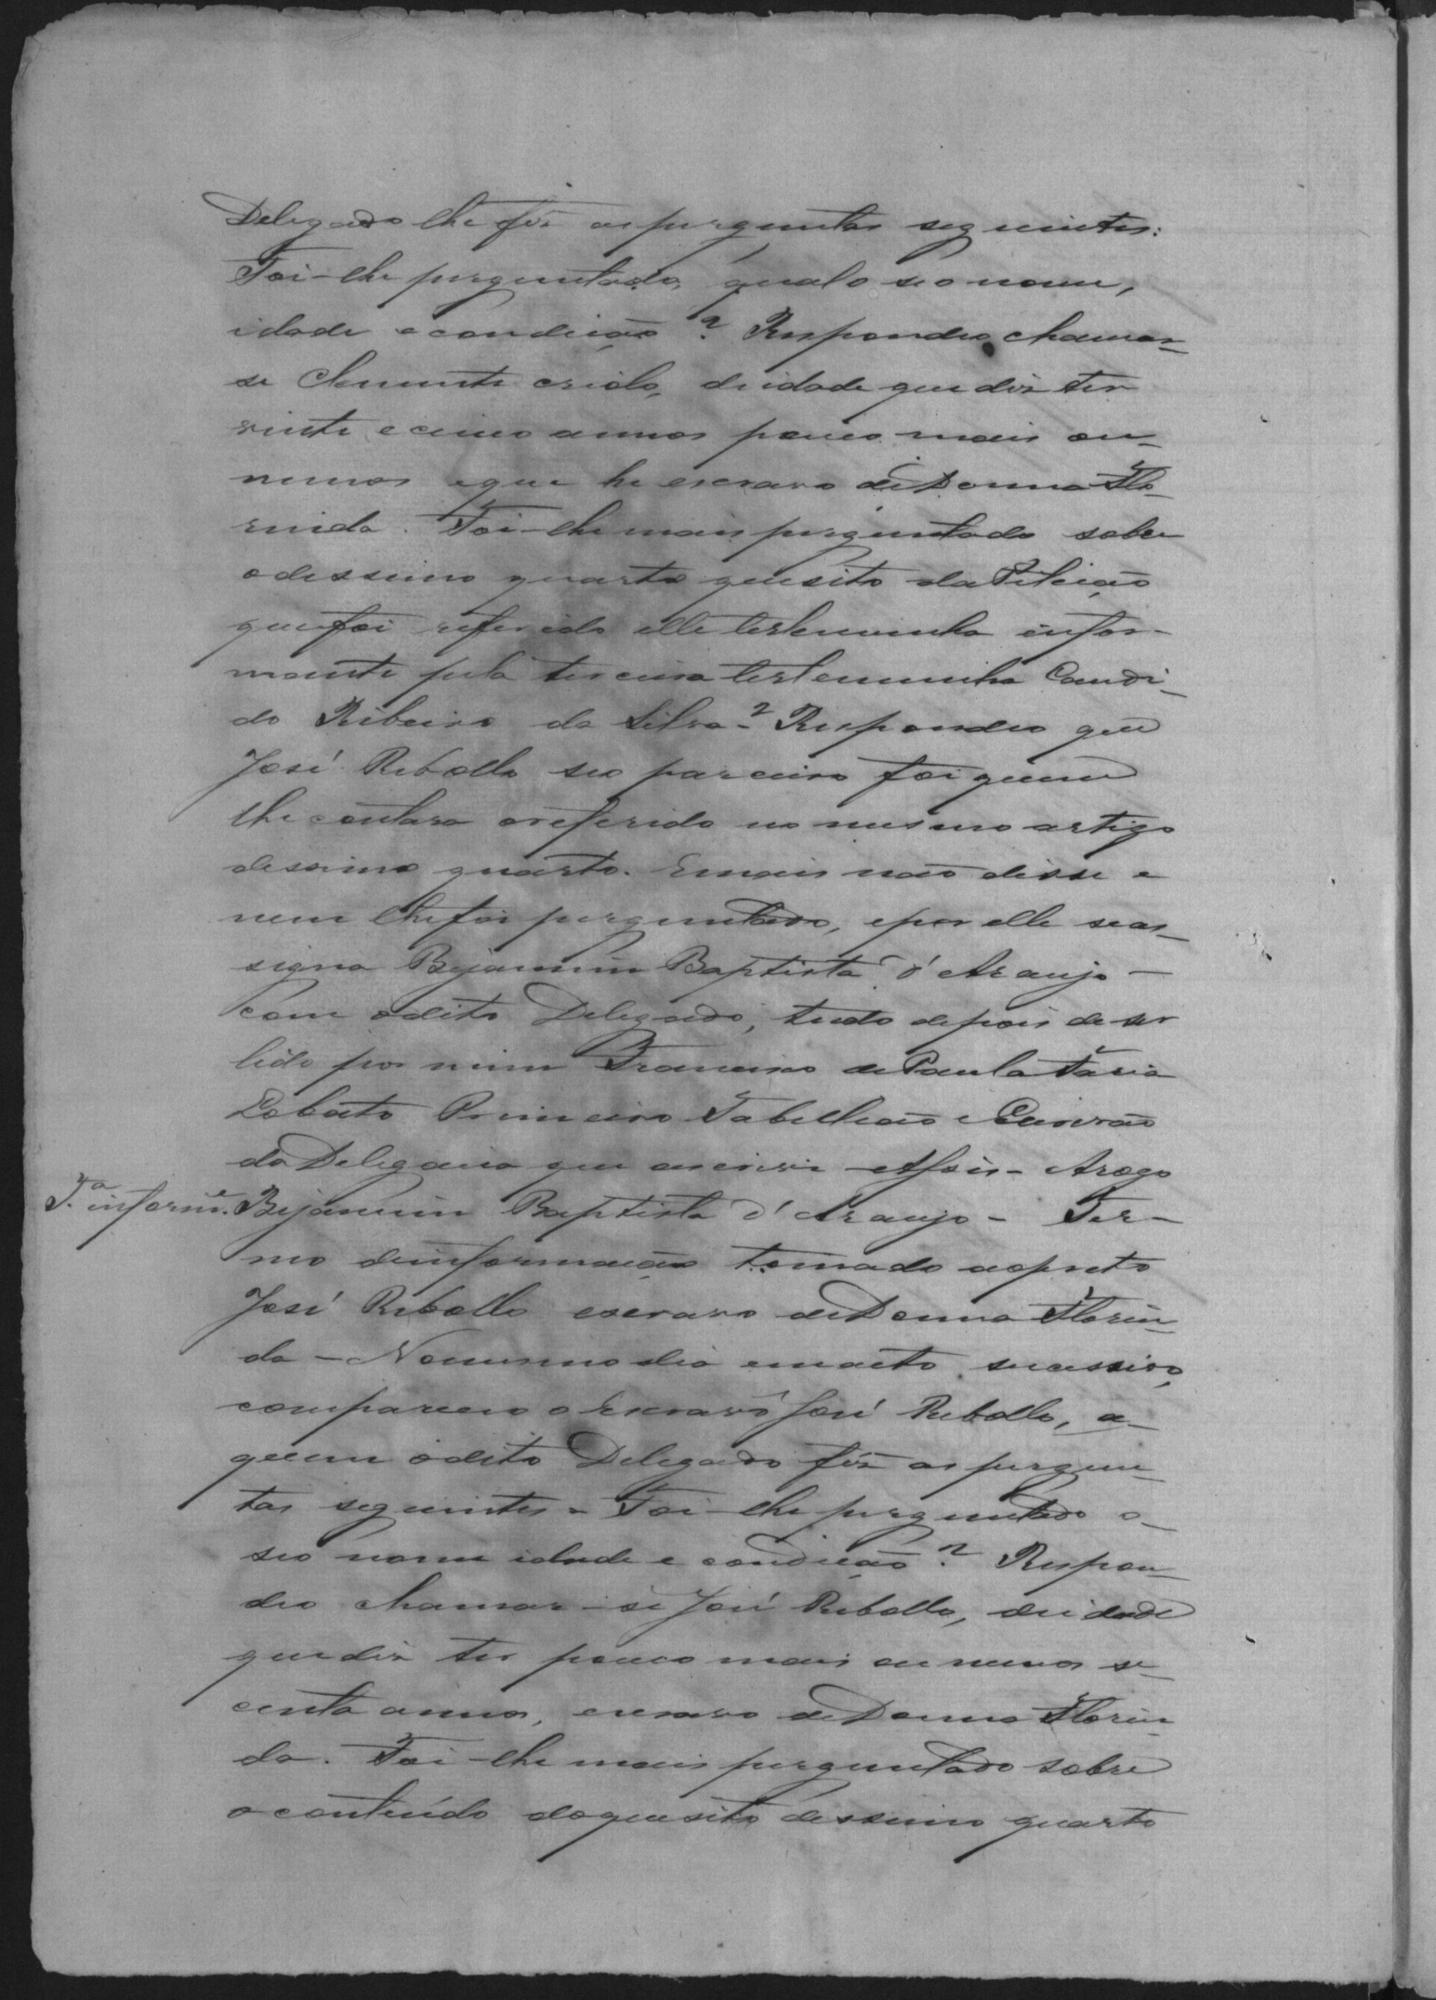 Delegado lhe fez as perguntas seguintes:
Foi-lhe perguntado, qual o seo nome,
idade e condição? Respondeo chamar-
se Clemente criolo, de idade que diz ter
vinte e cinco annos pouco mais ou
menos e que he escravo de Donna Flo-
rinda. Foi-lhe mais perguntado sobre
o dessimo quarto quesito da Petição
que foi referido elle testemunha infor-
mante pela terceira testemunha Candi-
do Ribeiro da Silva? Respondeo que
José Rebollo seo parceiro foi quem
lhe contara o referido no mesmo artigo
dessimo quarto. E mais não disse e
nem lhe foi perguntado, e por elle se as-
signa Bejamim Baptista d'Araujo -
com o dito Delegado, tudo depois de ser
lido por mim Francisco de Paula Faria
Lobato Primeiro Tabellião e Escrivão
da Delegacia que escrevi - Assis - Arogo
T.a inform.e Bejamim Baptista d'Araujo - Ter-
mo de informação tomado ao preto
José Rebollo escravo de Donna Florin-
da - No mesmo dia em acto sucessivo,
compareceo o Escravo José Rebollo, a-
quem o dito Delegado fez as pergun-
tas seguintes - Foi-lhe perguntado o-
seo nome idade e condição? Respon-
deo chamar-se José Rebollo, de idade
que diz ter pouco mais ou menos se-
centa annos, escravo de Donna Florin-
da. Foi-lhe mais perguntado sobre
o contheúdo do quesito dessimo quarto